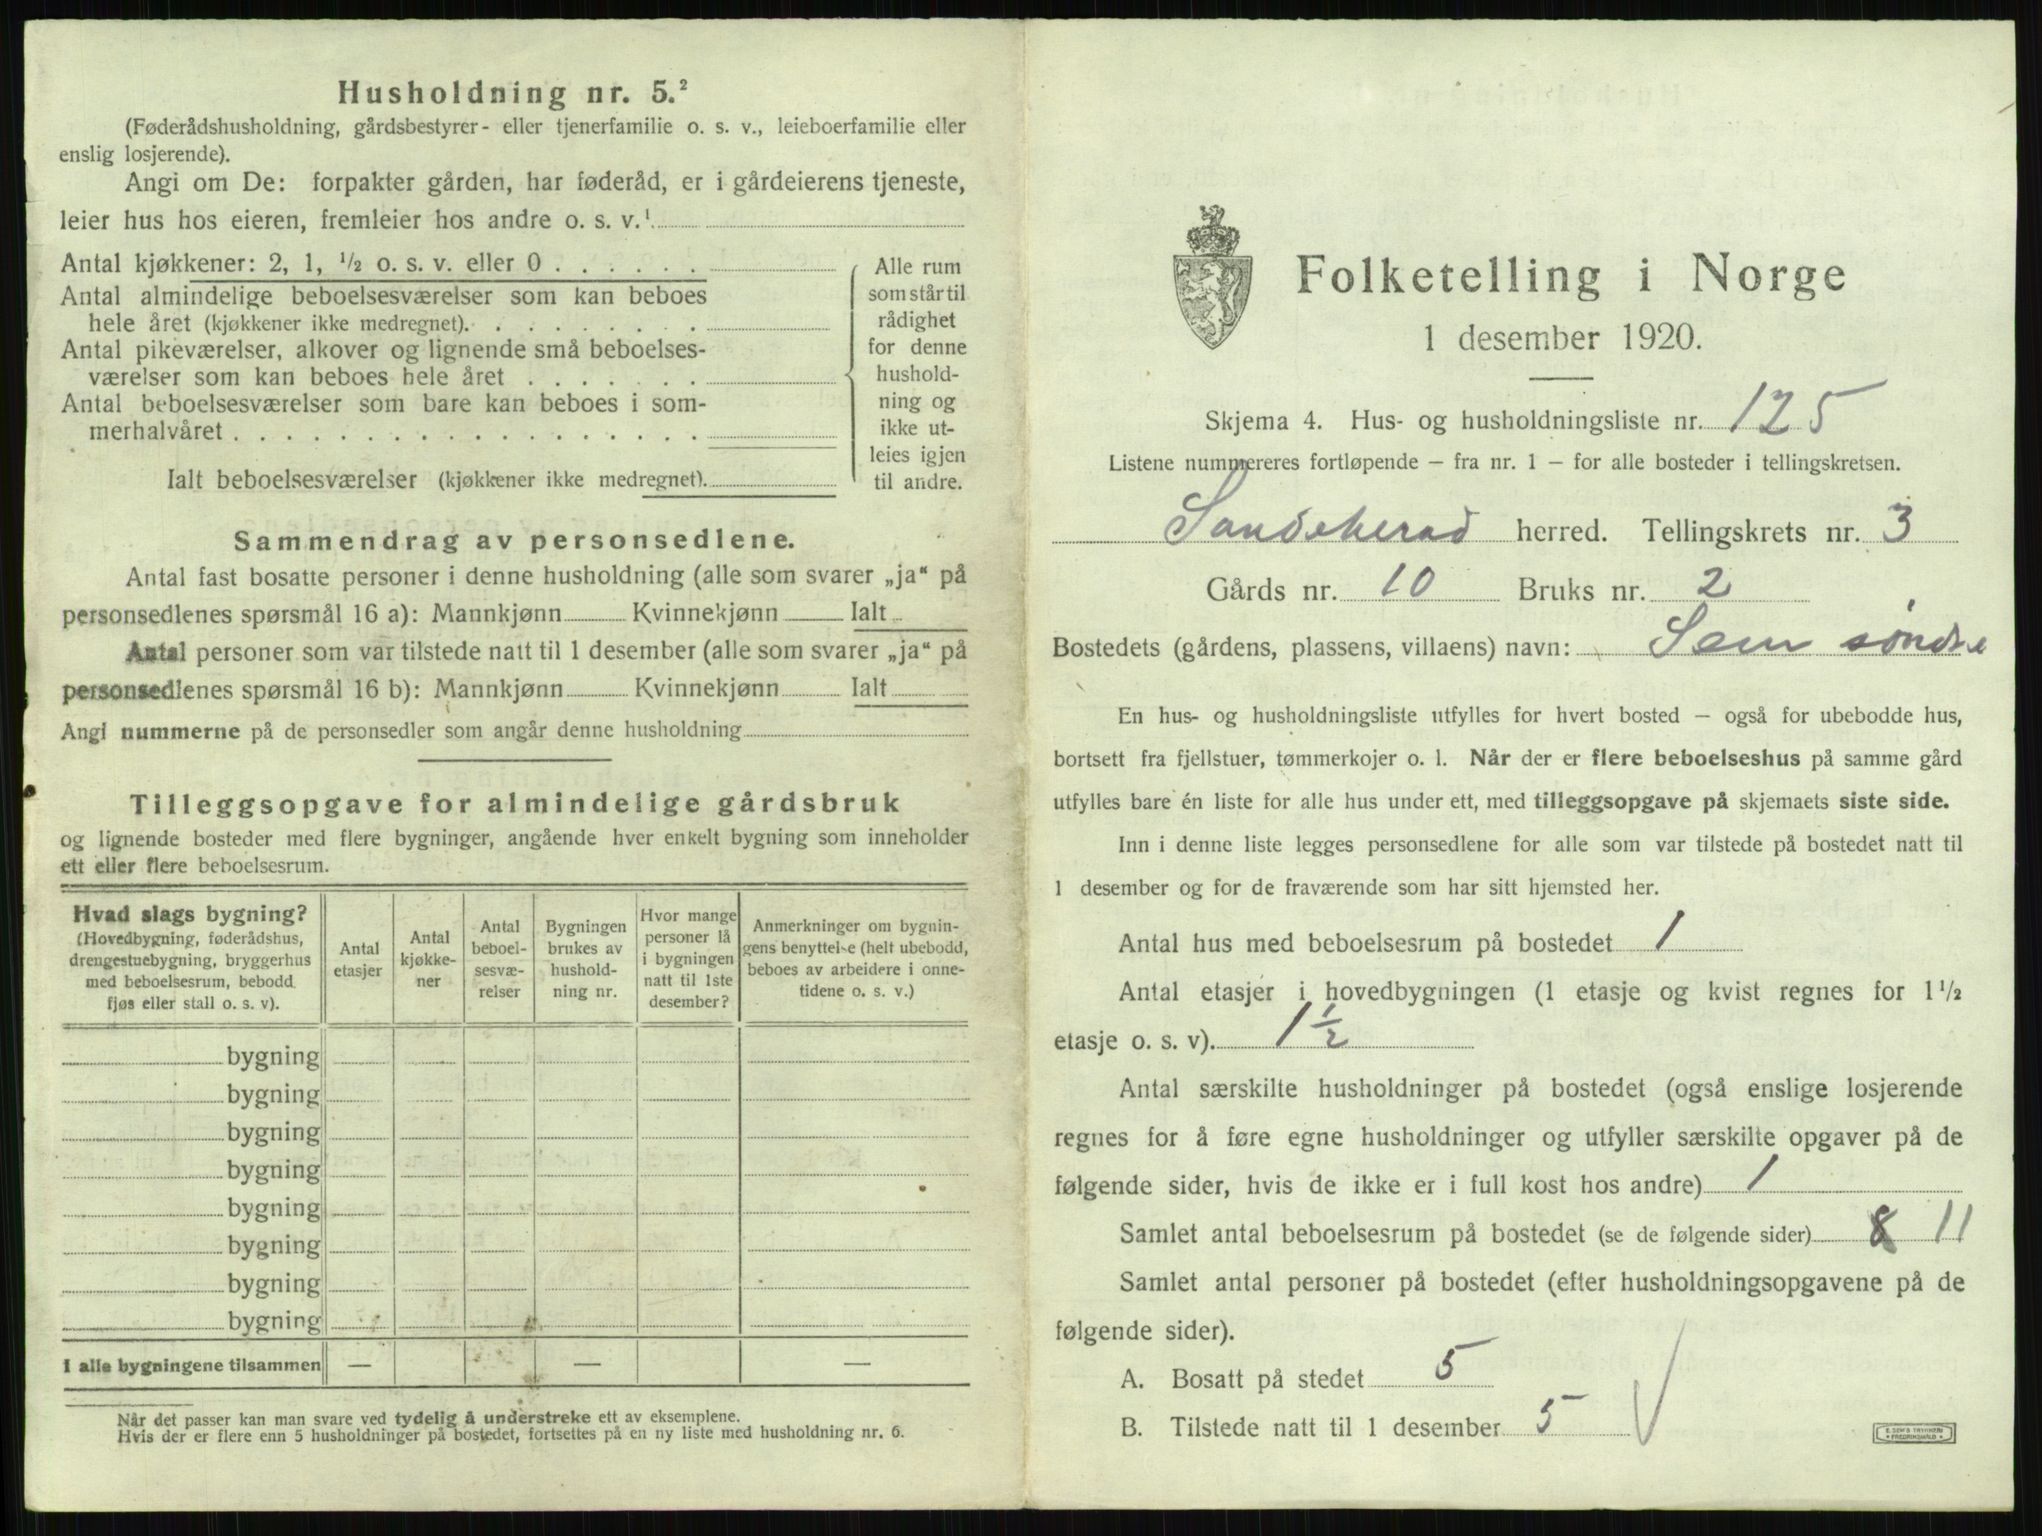 Husholdning nr. 5.²
(Føderådshusholdning, gårdsbestyrer- eller tjenerfamilie o. s. v., leieboerfamilie eller
enslig losjerende).
Angi om De: forpakter gården, har føderåd, er i gårdeierens tjeneste,
leier hus hos eieren, fremleier hos andre o. s. v.¹
Antal kjøkkener: 2, 1, ½ o. s. v. eller 0 . . . . . .
Antal almindelige beboelsesværelser som kan beboes
hele året (kjøkkener ikke medregnet). . . . . . . . .
Antal pikeværelser, alkover og lignende små beboelses-
værelser som kan beboes hele året . . . . . . .
Antal beboelsesværelser som bare kan beboes i som-
merhalvåret . . . . . . . . . . . . . . . . . .
Ialt beboelsesværelser (kjøkkener ikke medregnet).
Alle rum
som står til
rådighet
for denne
hushold-
ning og
ikke ut-
leies igjen
til andre.
Sammendrag av personsedlene.
Antal fast bosatte personer i denne husholdning (alle som svarer „ja“ på
personsedlenes spørsmål 16 a): Mannkjønn Kvinnekjønn Ialt
Antal personer som var tilstede natt til 1 desember (alle som svarer „ja“ på
personsedlenes spørsmål 16 b): Mannkjønn Kvinnekjønn Ialt
Angi nummerne på de personsedler som angår denne husholdning
Tilleggsopgave for almindelige gårdsbruk
og lignende bosteder med flere bygninger, angående hver enkelt bygning som inneholder
ett eller flere beboelsesrum.
Hvad slags bygning?
(Hovedbygning, føderådshus,
drengestuebygning, bryggerhus
med beboelsesrum, bebodd
fjøs eller stall o. s. v).
Antal
etasjer
Antal
kjøkke-
ner
Antal
beboel-
sesvæ-
relser
Bygningen
brukes av
hushold-
ning nr.
Hvor mange
personer lå
i bygningen
natt til 1ste
desember?
Anmerkninger om bygnin-
gens benyttelse (helt ubebodd,
beboes av arbeidere i onne-
tidene o. s. v.)
bygning
bygning
bygning
bygning
bygning
bygning
bygning
bygning
I alle bygningene tilsammen — — —
Når det passer kan man svare ved tydelig å understreke ett av eksemplene.
Hvis der er flere enn 5 husholdninger på bostedet, fortsettes på en ny liste med husholdning nr. 6.
Folketelling i Norge
1 desember 1920.
Skjema 4. Hus- og husholdningsliste nr. 125
Listene nummereres fortløpende – fra nr. 1 – for alle bosteder i tellingskretsen.
Sandeherad herred. Tellingskrets nr. 3
Gårds nr. 10 Bruks nr. 2
Bostedets (gårdens, plassens, villaens) navn: Sem søndre
En hus- og husholdningsliste utfylles for hvert bosted – også for ubebodde hus,
bortsett fra fjellstuer, tømmerkojer o. l. Når der er flere beboelseshus på samme gård
utfylles bare én liste for alle hus under ett, med tilleggsopgave på skjemaets siste side.
Inn i denne liste legges personsedlene for alle som var tilstede på bostedet natt til
1 desember og for de fraværende som har sitt hjemsted her.
Antal hus med beboelsesrum på bostedet 1
Antal etasjer i hovedbygningen (1 etasje og kvist regnes for 1½
etasje o. s. v). 1½
Antal særskilte husholdninger på bostedet (også enslige losjerende
regnes for å føre egne husholdninger og utfyller særskilte opgaver på de
følgende sider, hvis de ikke er i full kost hos andre) 1
Samlet antal beboelsesrum på bostedet (se de følgende sider) 8 11
Samlet antal personer på bostedet (efter husholdningsopgavene på de
følgende sider).
A. Bosatt på stedet 5
B. Tilstede natt til 1 desember 5
E. SEM'S TRYKKERI
FREDRIKSHALD